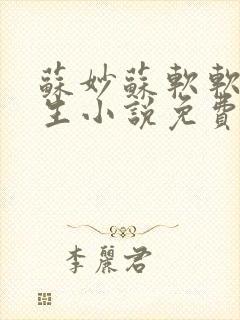 蘇妙蘇軟軟
生小說免費
李麗君